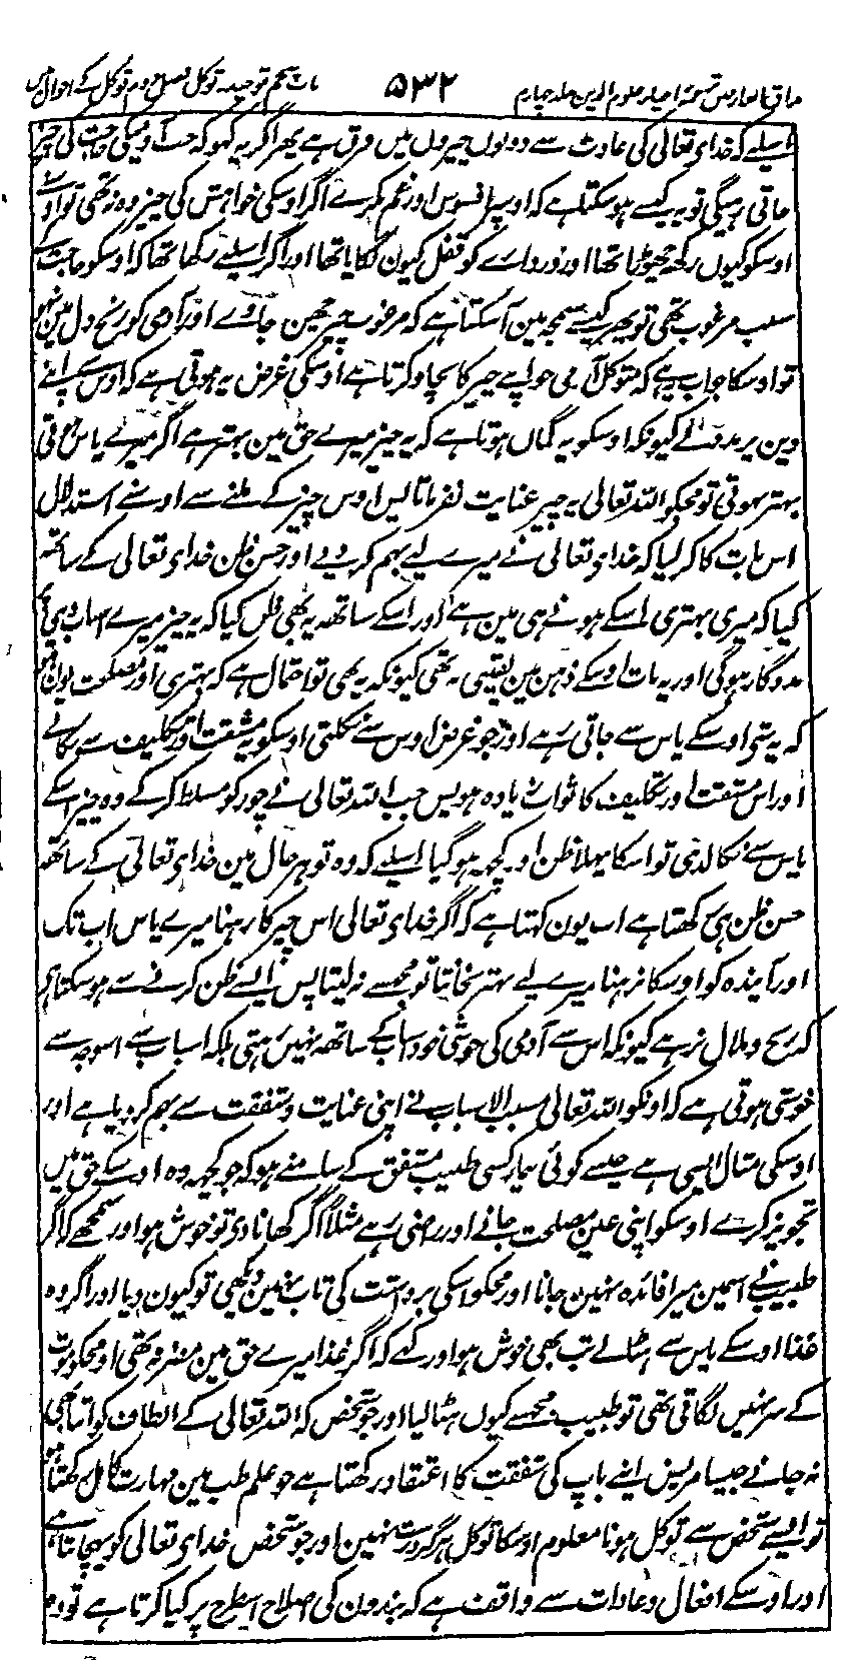 مذاق العارفین ترجمہ احیاء علوم الدین جلد چہارم ۵۳۲ باب پنجم توحید و توکل فصل دوم توکل کے احوال میں
اسلیے کہ خدای تعالی کی عادت سے دونوں چیزوں میں فرق ہے پھر اگر یہ کہو کہ جب آدمی کی حاجت کی چیز
جاتی رہیگی تو یہ کیسے ہو سکتا ہے کہ اوسپر افسوس اور غم نکرے اگر اوسکی خواہش کی چیز وہ نہ تھی تو اوسنے
اوسکو کیوں رکھ چھوڑا تھا اور دروازے کو قفل کیون لگایا تھا اور اگر اسلیے رکھا تھا کہ اوسکو حاجت کے
سبب مرغوب تھی تو پھر کیسے سمجھ مین آ سکتا ہے کہ مرغوب چیز چھین جاوے اور آدمی کو رنج دل مین نہو
تو اوسکا جواب یہ ہے کہ متوکل آدمی جو اپنے چیز کا بچاو کرتا ہے اوسکی غرض یہ ہوتی ہے کہ اوس سے اپنے
دین پر مدد لے کیونکہ اوسکو یہ گمان ہوتا ہے کہ یہ چیز میرے حق مین بہتر ہے اگر میرے پاس ہوتی
بہتر نہوتی تو مجکو اللہ تعالی یہ چیز عنایت نفرماتا پس اوس چیز کے ملنے سے اوسنے استدلال
اس بات کا کر لیا کہ خدای تعالی نے میرے لیے بہم کر دی ہے اور حسن ظن خدای تعالی کے ساتھ
کیا کہ میری بہتری اسکے ہونے ہی مین ہے اور اسکے ساتھ یہ بھی ظن کیا کہ یہ چیز میرے اسباب دینی کی
مددگار ہوگی اور یہ بات اوسکے ذہن مین یقینی نہ تھی کیونکہ یہ بھی تو احتمال ہے کہ بہتری اور مصلحت یون ہو
کہ یہ شی اوسکے پاس سے جاتی رہے اور جو غرض اوس سے نکلتی اوسکو یہ مشقت اور تکلیف سے نکالے
اور اس مشقت اور تکلیف کا ثواب زیادہ ہو پس جب اللہ تعالی نے چور کو مسلط کر کے وہ چیز اسکے
پاس سے نکالدی تو اسکا پہلا ظن اور کچھ ہو گیا اسلیے کہ وہ تو ہر حال مین خدای تعالی کے ساتھ
حسن ظن ہی رکھتا ہے اب یون کہتا ہے کہ اگر خدای تعالی اس چیز کا رہنا میرے پاس اب تک
اور آیندہ کو اوسکا نرہنا میرے لیے بہتر نجانتا تو مجھسے نہ لیتا پس ایسے ظن کرنے سے ہو سکتا ہے
کہ رنج و ملال نرہے کیونکہ اس سے آدمی کی خوشی خود اسباب کے ساتھ نہین رہتی بلکہ اسباب سے اسوجہ سے
خوشی ہوتی ہے کہ اونکو اللہ تعالی مسبب الاسباب نے اپنی عنایت و شفقت سے بہم کر دیا ہے اور
اوسکی مثال ایسی ہے جیسے کوئی بیمار کسی طبیب مشفق کے سامنے ہو کہ جو کچھ وہ اوسکے حق میں
تجویز کرے اوسکو اپنی عین مصلحت جانے اور راضی رہے مثلاً اگر کھانا دی تو خوش ہو اور سمجھے کہ اگر
طبیب نے اسمین میرا فائدہ نہین جانا اور مجکو اسکی برداشت کی تاب نہین دیکھی تو کیون دیا اور اگر وہ
غذا اوسکے پاس سے ہٹالے تب بھی خوش ہو اور کہے کہ اگر غذا میرے حق مین مضر نہ تھی اور مجکو موت
کے سر نہیں لگاتی تھی تو طبیب نے مجھسے کیوں ہٹا لیا اور جو شخص کہ اللہ تعالی کے الطاف کو اتنا بھی
نہ جانے جیسا مریض اپنے باپ کی شفقت کا اعتقاد رکھتا ہے جو علم طب مین مہارت کامل رکھتا ہو
تو ایسے شخص سے توکل ہونا معلوم اوسکا توکل ہرگز درست نہین اور جو شخص خدای تعالی کو پہچانتا ہے
اور اوسکے افعال و عادات سے واقف ہے کہ بندون کی اصلاح اسطرح پر کیا کرتا ہے تو وہ